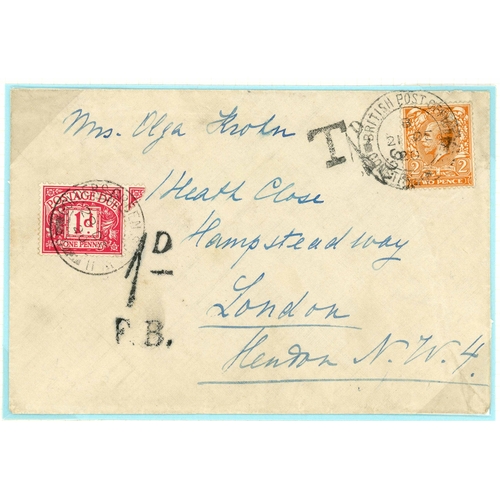 BRITISH POST
T
TWO PENCE
Mrs. Olga Krohn
1 Heath Close
Hampsteadway
London
Hendon N.W.4.
POSTAGE DUE
1D
ONE PENNY
1D
F.B.